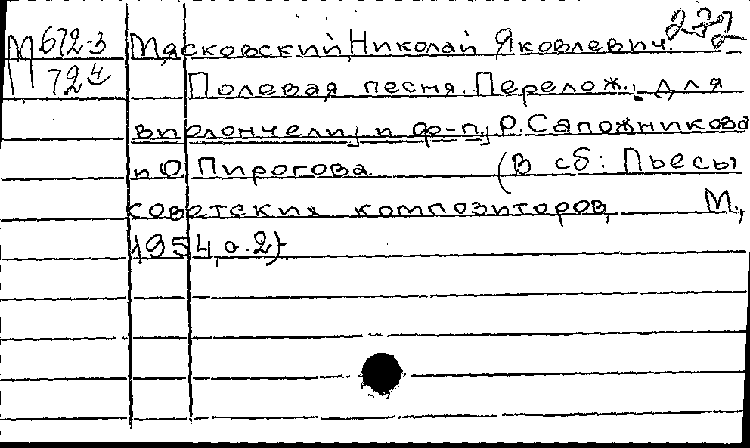 М 672-3 Мясковский, Николай Яковлевич. 272
П 724 Полевая песня. Перелож. для
виолончели и ф-п. Р. Сапожникова
и О. Пирогова (В сб: Пьесы
советских композиторов, М.,
1954, с. 2)